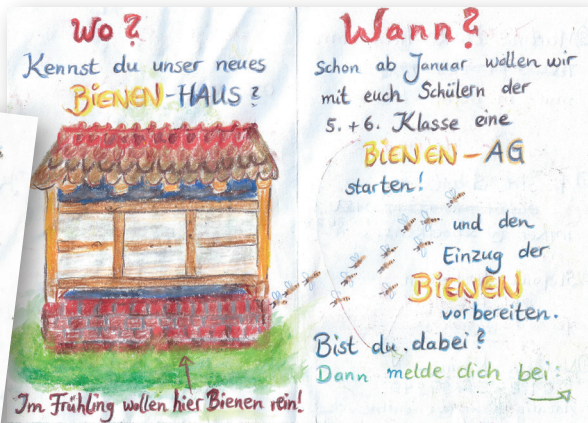 Wo?
Kennst du unser neues
BIENEN-HAUS?
Im Frühling wollen hier Bienen rein!
Wann?
Schon ab Januar wollen wir
mit euch Schülern der
5.+6. Klasse eine
BIENEN-AG
starten!
und den
Einzug der
BIENEN
vorbereiten.
Bist du dabei?
Dann melde dich bei: